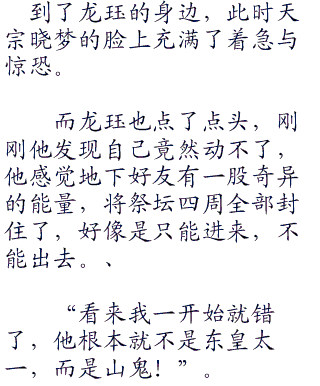 到了龙珏的身边，此时天
宗晓梦的脸上充满了着急与
惊恐。
而龙珏也点了点头，刚
刚他发现自己竟然动不了，
他感觉地下好友有一股奇异
的能量，将祭坛四周全部封
住了，好像是只能进来，不
能出去。、
“看来我一开始就错
了，他根本就不是东皇太
一，而是山鬼！”。